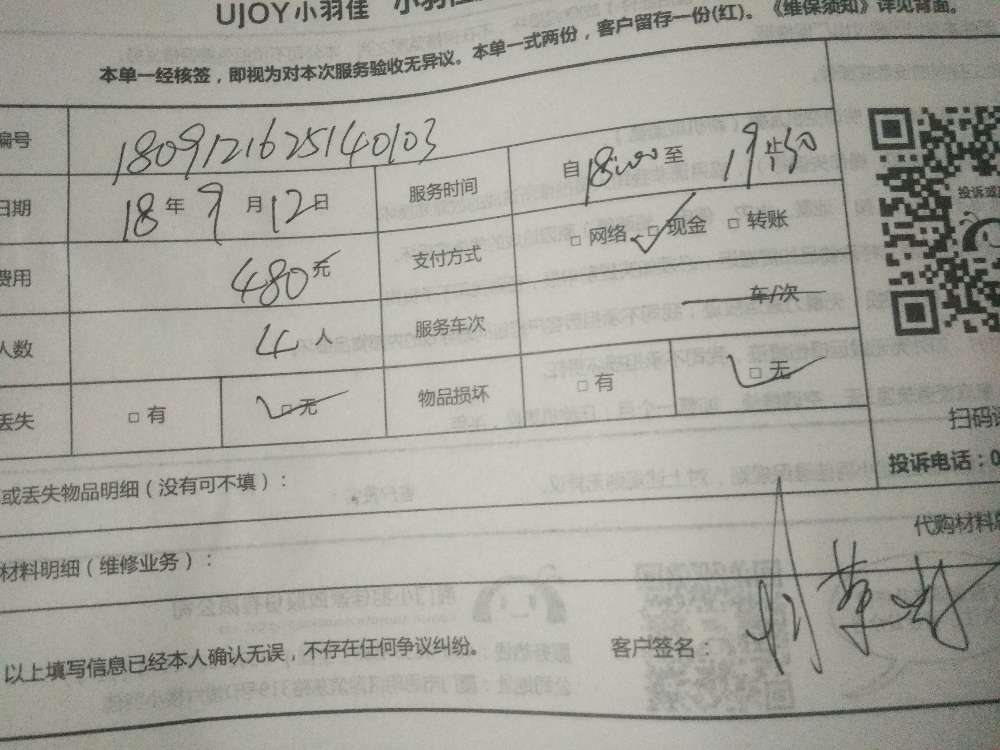 UJOY小羽佳 小羽佳
本单一经核签，即视为对本次服务验收无异议。本单一式两份，客户留存一份(红)。《维保须知》详见背面。
编号 1809121625140103
日期 18年9月12日 服务时间 自18:00至19
费用 480元 支付方式 □网络 ✓□现金 □转账
人数 4人 服务车次 车/次
丢失 □有 ✓□无 物品损坏 □有 ✓□无
投诉或
扫码
投诉电话：0
或丢失物品明细（没有可不填）：
代购材料
材料明细（维修业务）：
以上填写信息已经本人确认无误，不存在任何争议纠纷。 客户签名：